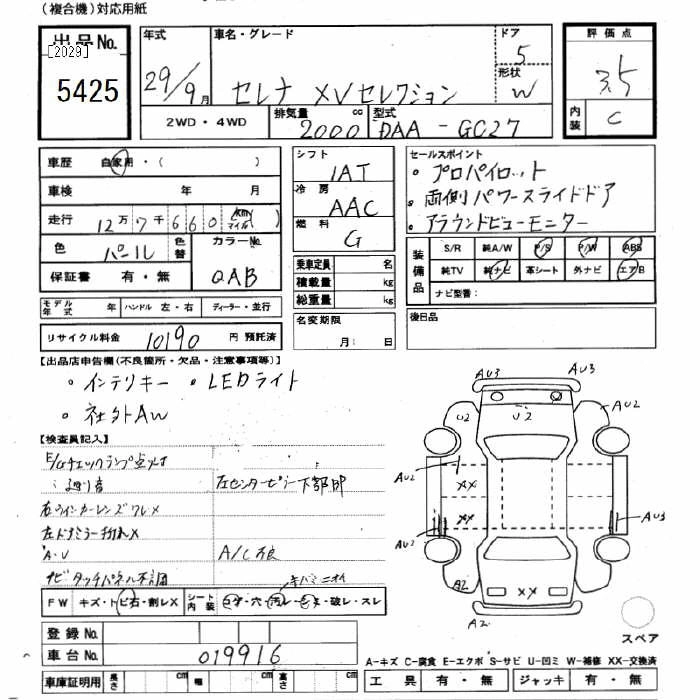 （複合機）対応用紙
出品No.
[2029]
5425
年式
29/9月
車名・グレード
セレナ XVセレクション
ドア
5
形状
W
評価点
3.5
内装
C
2WD・4WD
排気量
2000cc
型式
DAA-GC27
車歴 自家用・( )
車検 年 月
走行 12万7千660 km/マイル( )
色 パール
色替
カラーNo.
QAB
保証書 有・無
シフト
IAT
冷房
AAC
燃料
G
乗車定員 名
積載量 kg
総重量 kg
セールスポイント
・プロパイロット
・両側パワースライドドア
・アラウンドビューモニター
装備品
S/R 純A/W P/S P/W ABS
純TV 純ナビ 革シート 外ナビ エアB
ナビ型番：
モデル年式 年 ハンドル 左・右 ディーラー・並行
リサイクル料金 10190 円 預託済
名変期限
月： 日
後日品
【出品店申告欄(不良箇所・欠品・注意事項等)】
・インテリキー ・LEDライト
・社外AW
【検査員記入】
E/Gチェックランプ点灯
左センターピラー下部凹
右ウインカーレンズワレX
左ドアミラー
A・V
A/C不良
ナビタッチパネル不調
FW キズ・トビ石・割レX
シート内装 コゲ・穴・汚レ・キズ・破レ・スレ
キバミ ニオイ
登録No.
車台No. 019916
車庫証明用 長さ cm 幅 cm 高さ cm
AU3 AU3
U2 U2 AU2
AU2
XX
XX
AU3
AU2
A2
XX
A2
スペア
A-キズ C-腐食 E-エクボ S-サビ U-凹ミ W-補修 XX-交換済
工具 有・無 ジャッキ 有・無